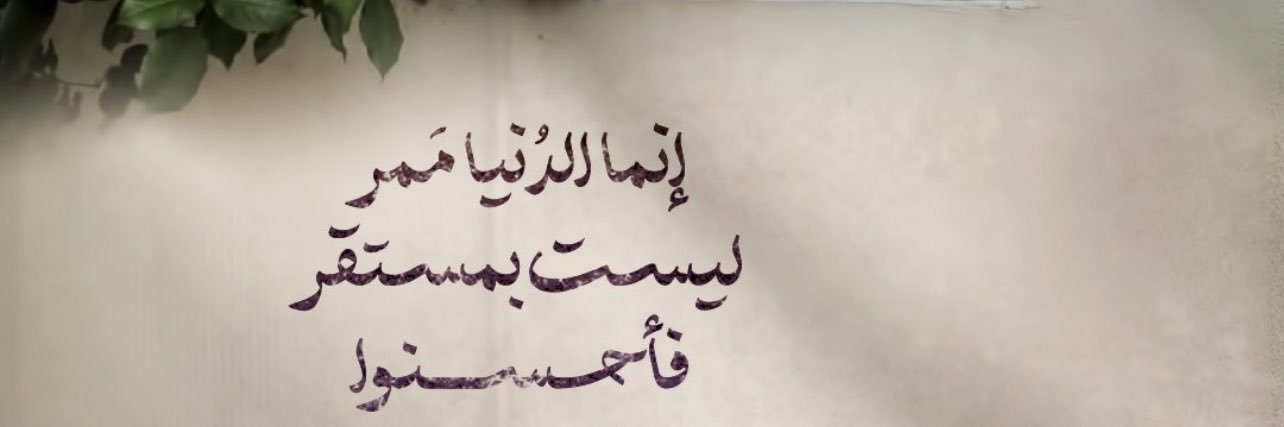 إنما الدُنيا مَمر
ليست بمستقر
فأحسنوا